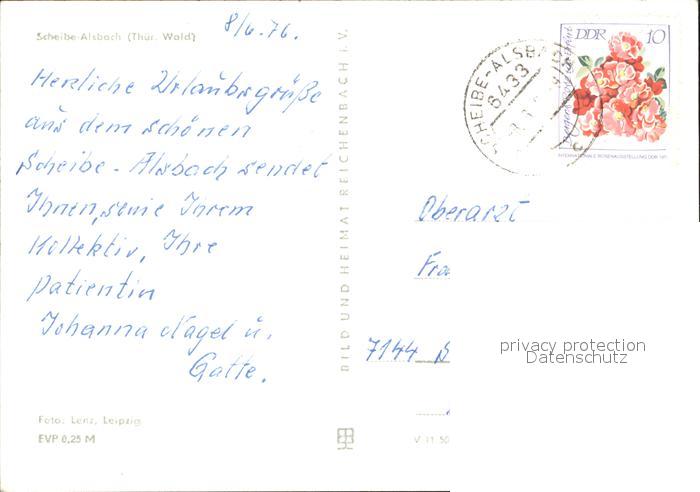 Scheibe-Alsbach (Thür. Wald)
8/6.76.
Herzliche Urlaubsgrüße
aus dem schönen
Scheibe-Alsbach sendet
Ihnen, sowie Ihrem
Kollektiv, Ihre
Patientin
Johanna Nagel u.
Gatte.
Foto: Lenz, Leipzig
EVP 0,25 M
BILD UND HEIMAT REICHENBACH i. V.
V 11 50
SCHEIBE-ALSB
6433
DDR 10
INTERNATIONALE ROSENAUSSTELLUNG DDR
Oberarzt
Fra
7144
privacy protection
Datenschutz